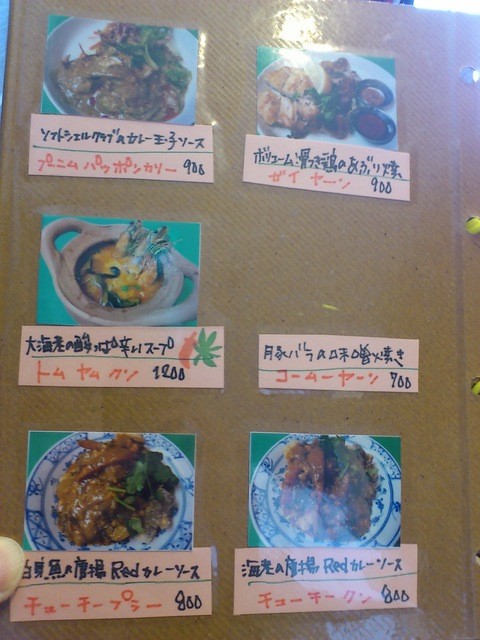 ソフトシェルクラブのカレー玉子ソース
プーニム パッポンカリー 900
ボリューム!骨つき鶏のあぶり焼
ガイ ヤーン 900
大海老の酸っぱ辛いスープ
トム ヤム クン 1200
豚バラの味噌焼き
コームーヤーン 700
白身魚の唐揚 Redカレーソース
チューチープラー 800
海老の唐揚 Redカレーソース
チューチークン 800